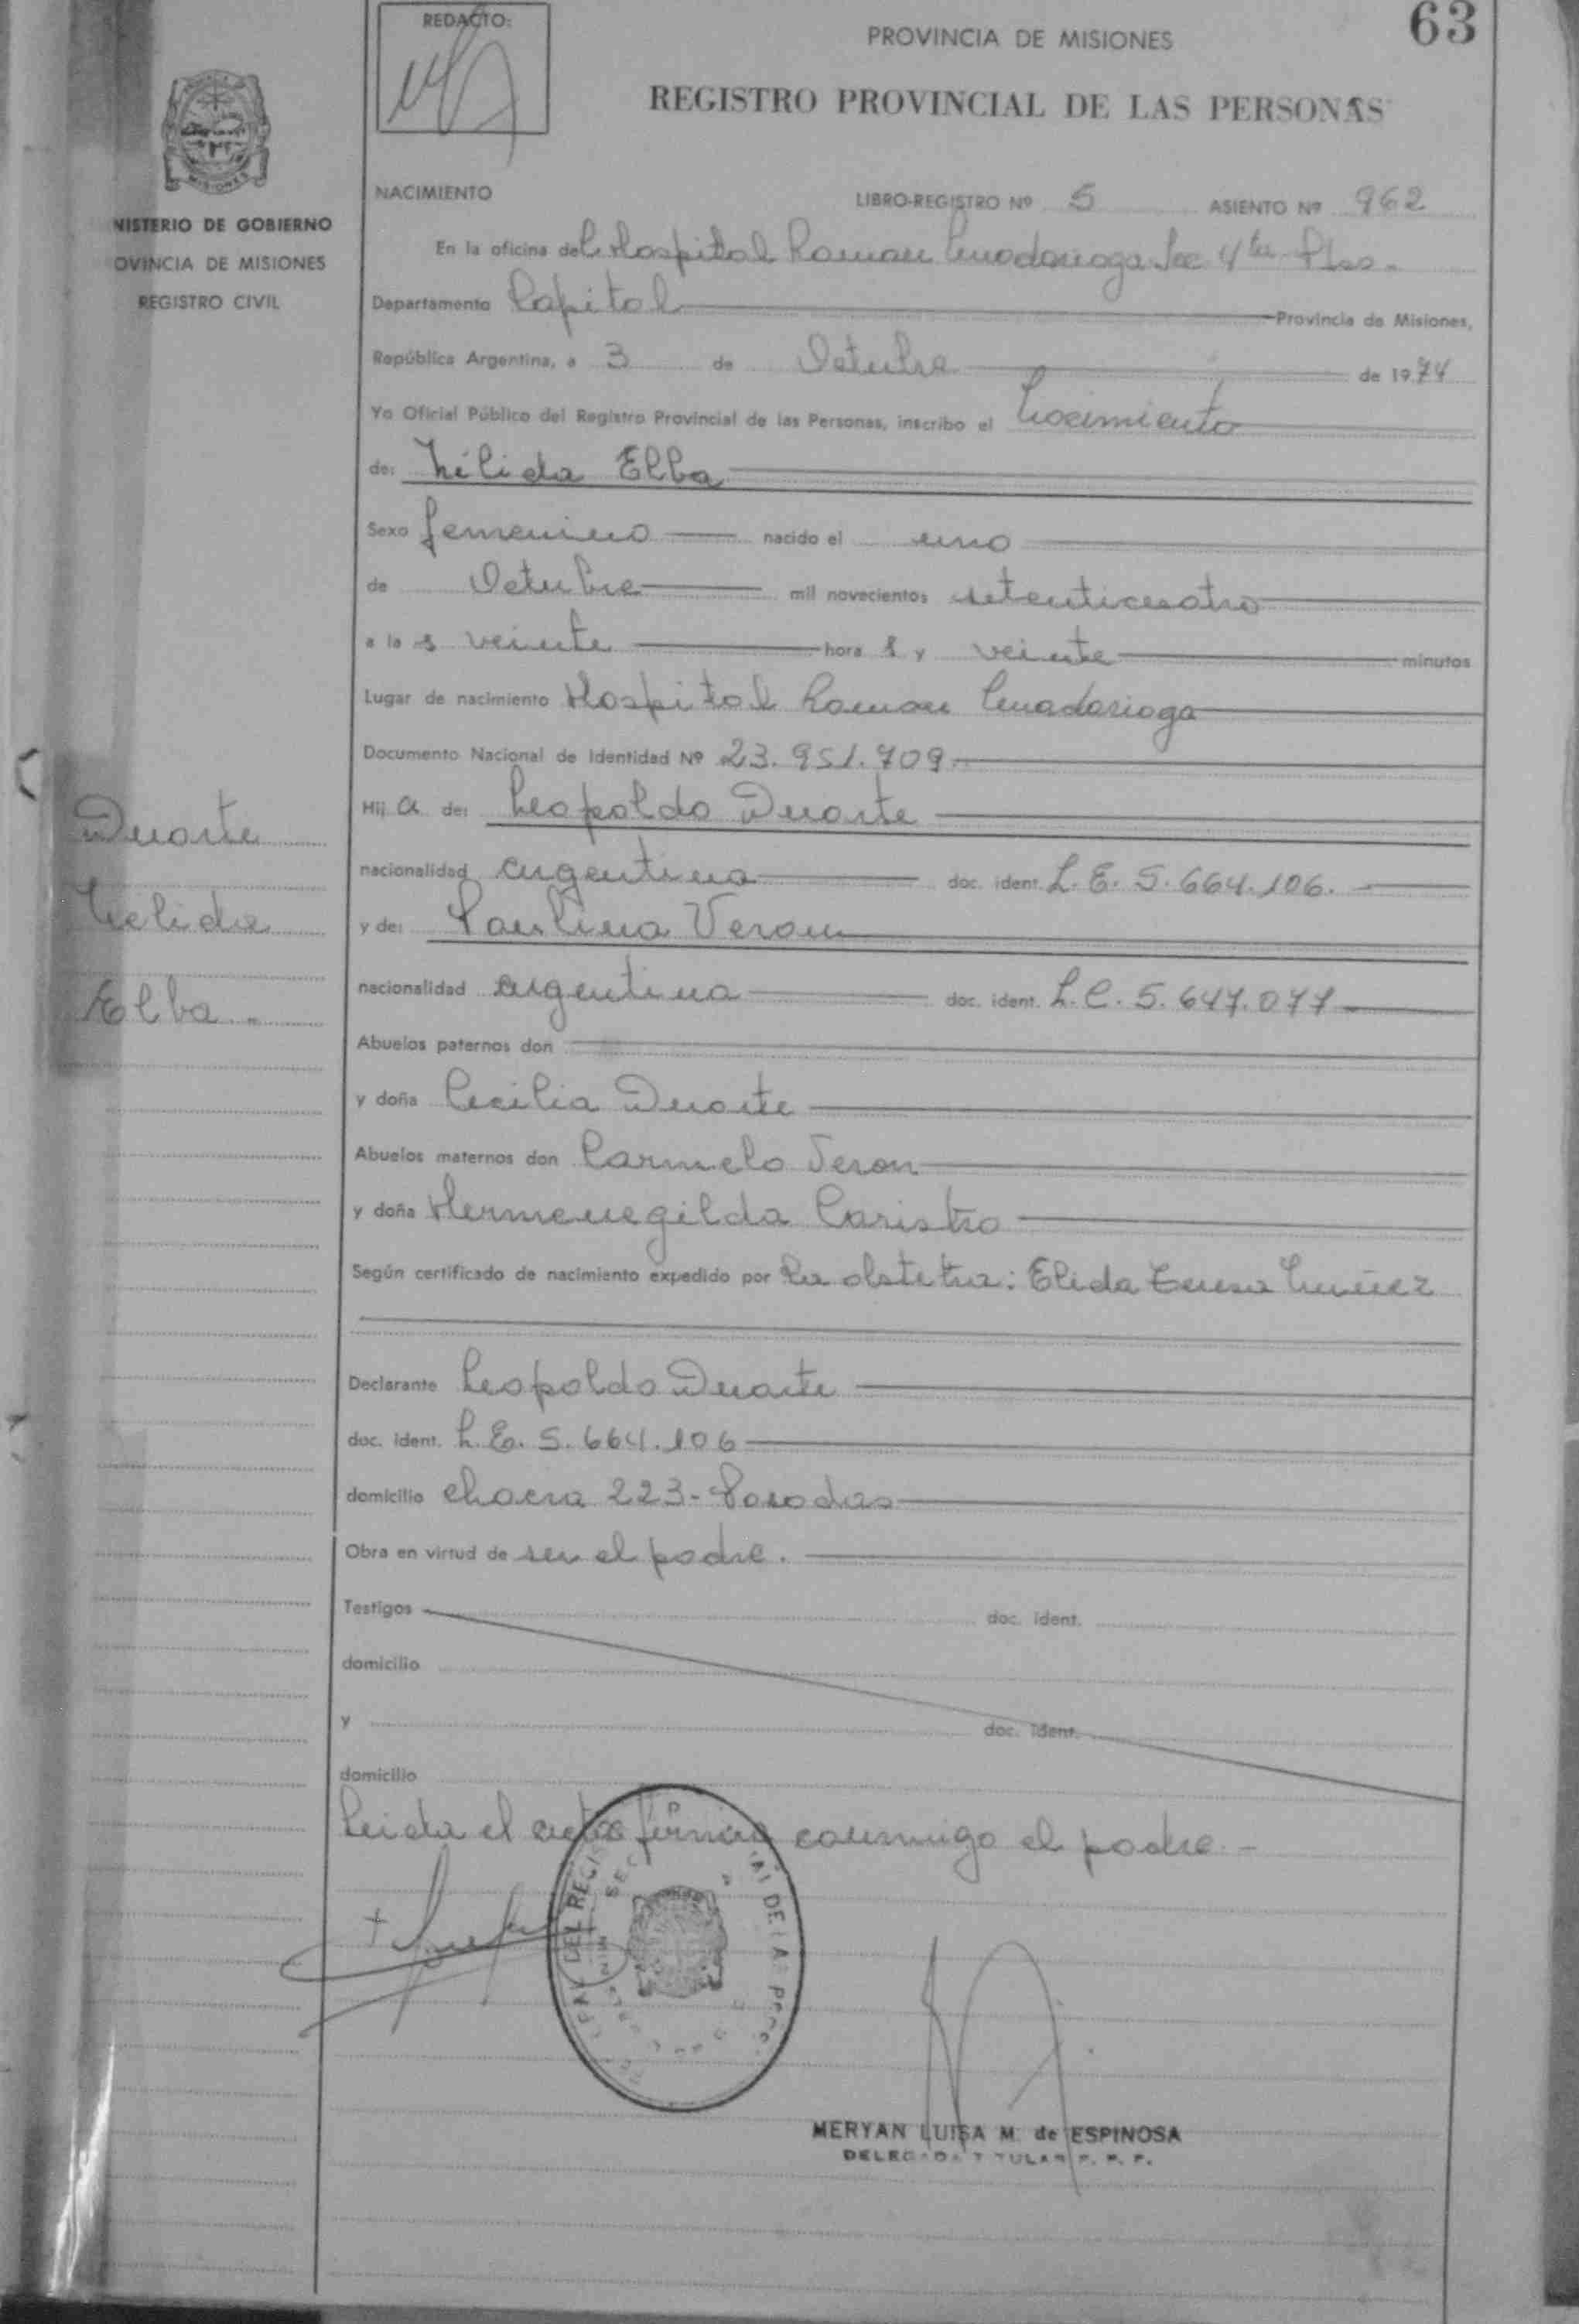 REDACTO:
PROVINCIA DE MISIONES
63
REGISTRO PROVINCIAL DE LAS PERSONAS
MISIONES
NISTERIO DE GOBIERNO
OVINCIA DE MISIONES
REGISTRO CIVIL
NACIMIENTO LIBRO-REGISTRO Nº 5 ASIENTO Nº 962
En la oficina del Hospital Ramon Madariaga Sec 4ta Pdas.
Departamento Capital Provincia de Misiones,
República Argentina, a 3 de Octubre de 1974
Yo Oficial Público del Registro Provincial de las Personas, inscribo el Nacimiento
de: Nélida Elba
Sexo femenino nacido el uno
de Octubre mil novecientos setenticuatro
a la s veinte hora s y veinte minutos
Lugar de nacimiento Hospital Ramon Madariaga
Documento Nacional de Identidad Nº 23.951.709.
Hij a de: Leopoldo Duarte
nacionalidad argentina doc. ident. L.E. 5.664.106.
y de: Paulina Veron
nacionalidad argentina doc. ident. L.C. 5.647.077
Abuelos paternos don
y doña Cecilia Duarte
Abuelos maternos don Carmelo Veron
y doña Hermenegilda Caristro
Según certificado de nacimiento expedido por La obstetra: Elida Teresa
Declarante Leopoldo Duarte
doc. ident. L.E. 5.664.106
domicilio chacra 223- Posadas
Obra en virtud de ser el padre.
Testigos doc. ident.
domicilio
y doc. ident.
domicilio
Leida el acta firma conmigo el padre.-
Duarte
Nélida
Elba.-
DEL REGIS
SEC
DE LAS
MERYAN LUISA M. de ESPINOSA
DELEGADA TITULAR